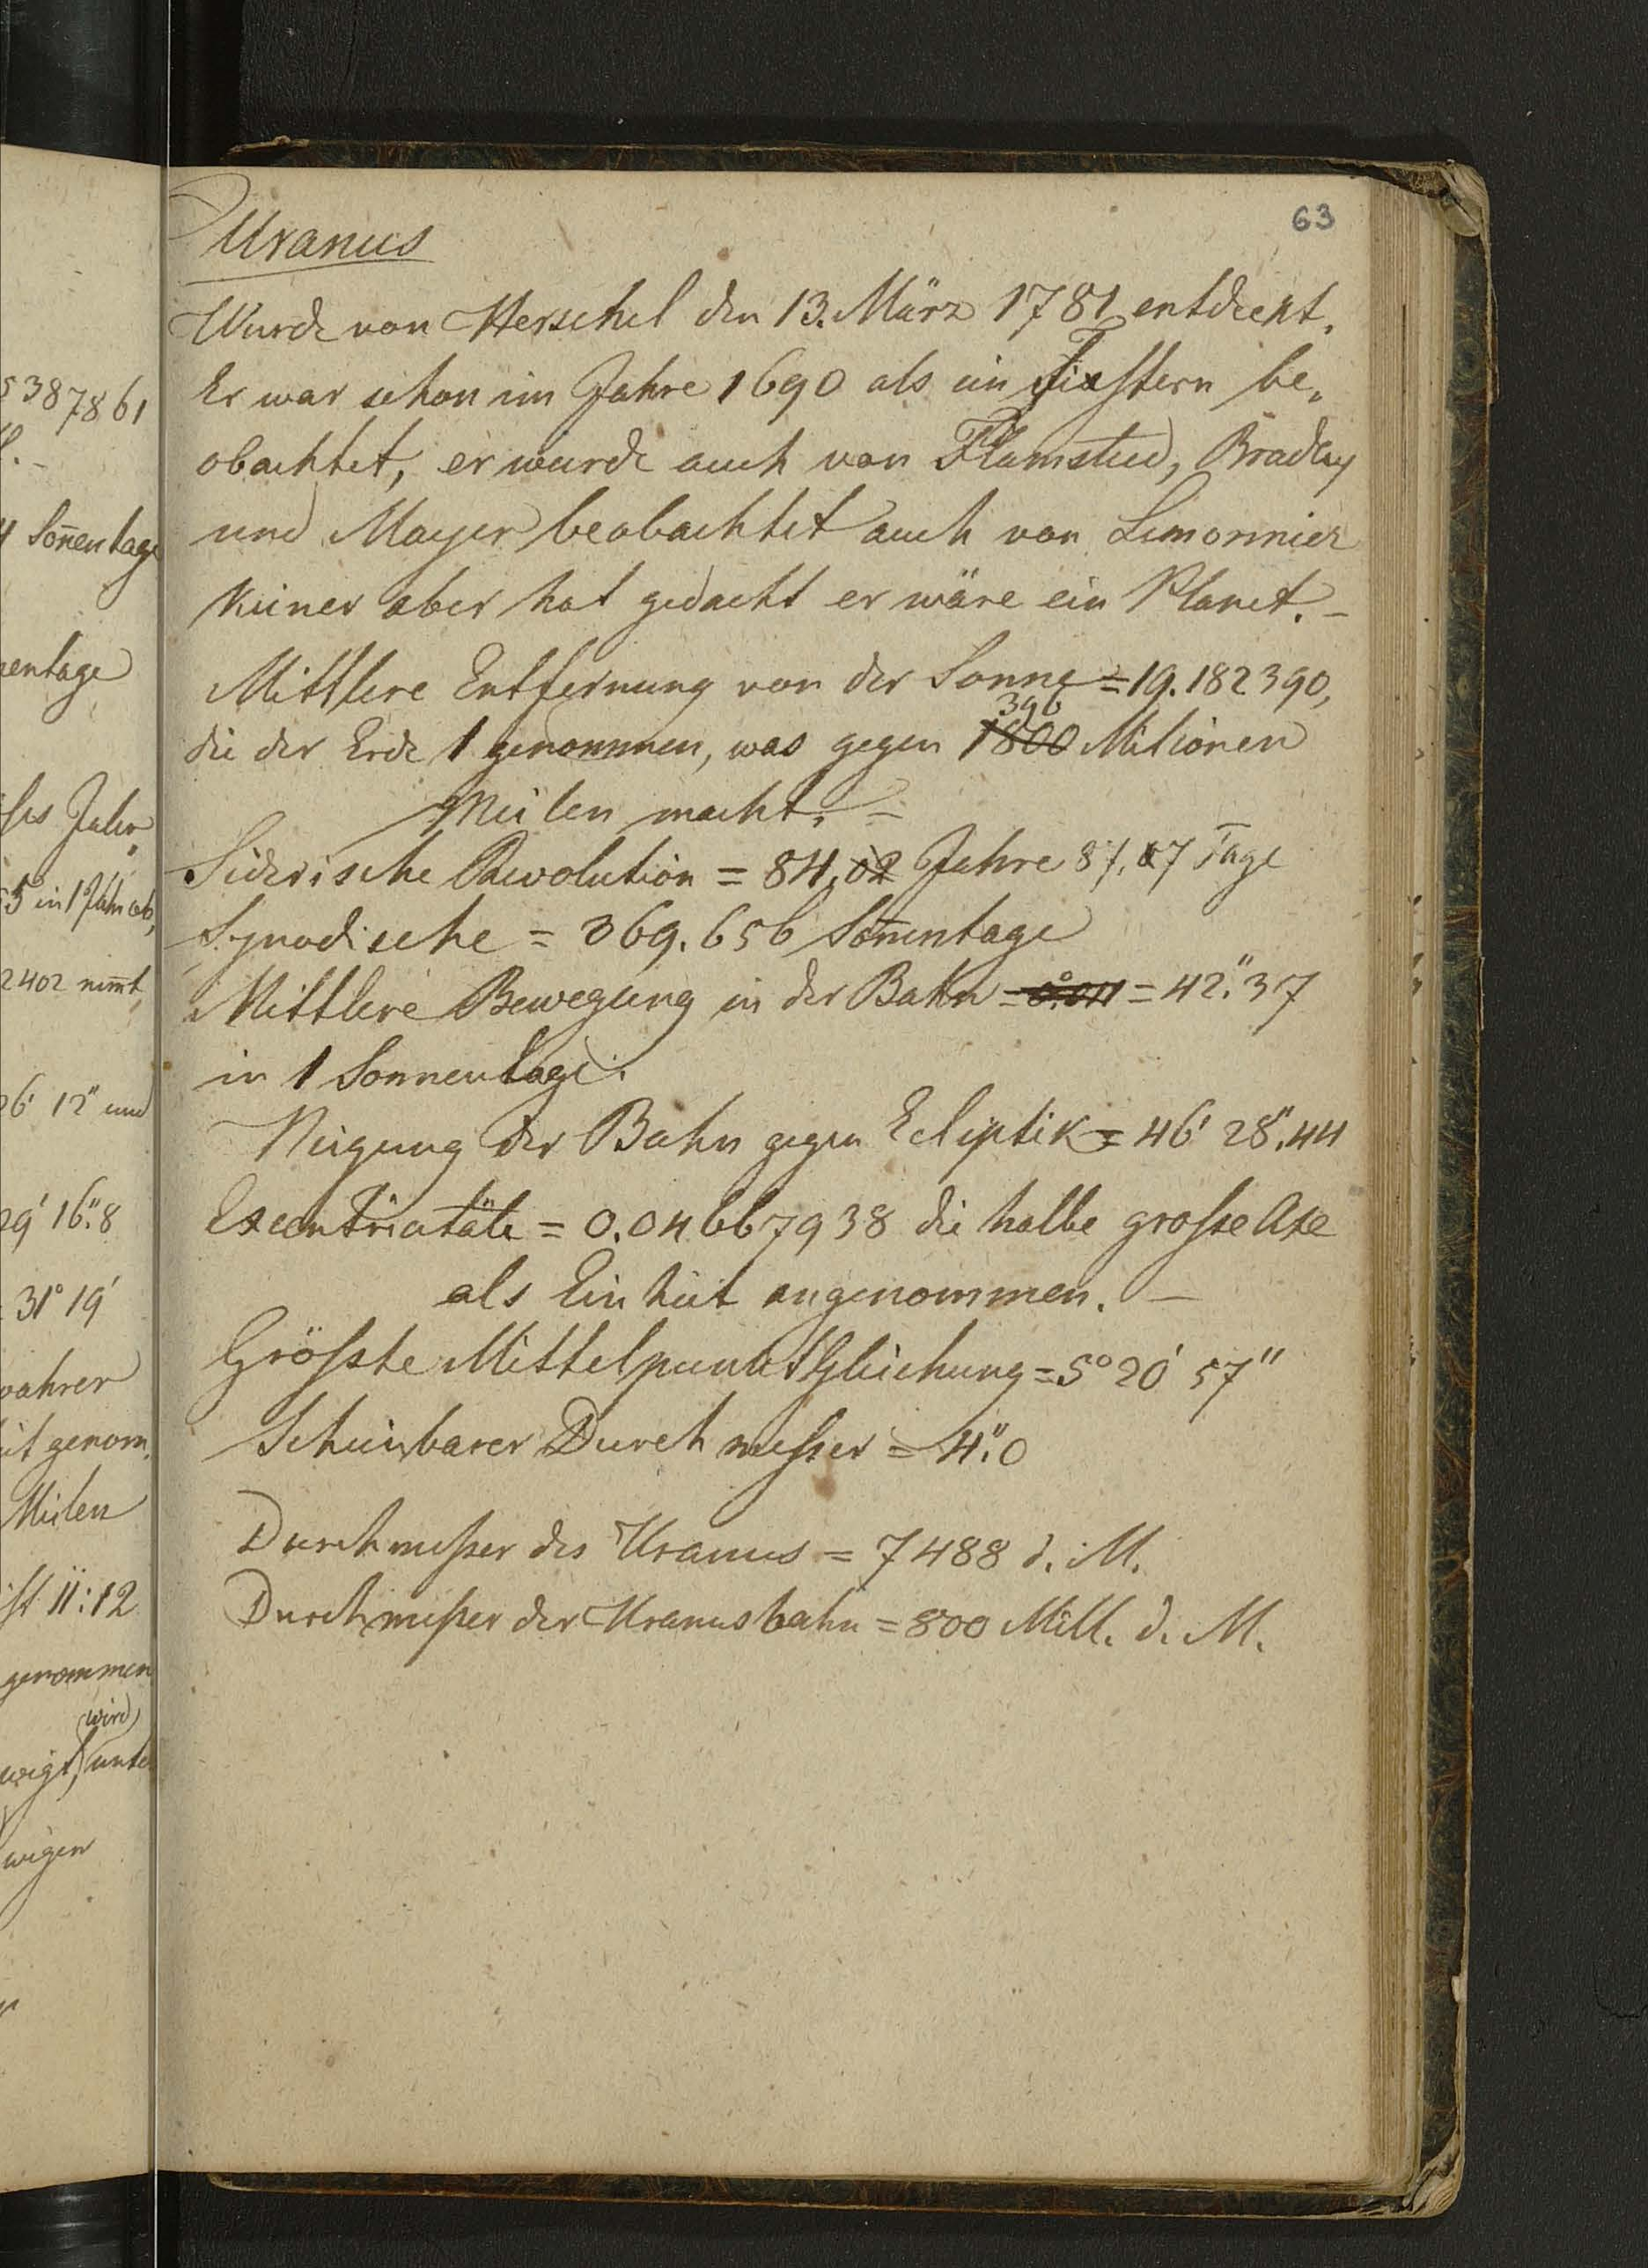 63
Uranus
Wurde von Herschel den 13. März 1781 entdeckt.
Er war schon im Jahre 1690 als ein Fixstern be,
obachtet, er wurde auch von Flamsteed, Bradley
und Mayer beobachtet auch von Lemonnier
keiner aber hat gedacht er wäre ein Planet. –
Mittlere Entfernung von der Sonne = 19.182390,
396
die der Erde 1 genommen, was gegen 1800 Milionen
Meilen macht. –
Siderische Revolution = 84,02 Jahre 8/.7 Tage
Synodische = 369.656 Son̄entage
Mittlere Bewegung in der Bahn = = 42."37
in 1 Sonnentage.
Neigung der Bahn gegen Ecliptik = 46' 28".44
Excentricität = 0.04667938 die halbe grosse Axe
als Einheit angenommen. –
Grösste Mittelpunktsgleichung = 5° 20' 57"
Scheinbarer Durchmesser = 4".0
Durchmesser des Uranus = 7488 d. M.
Durchmesser der Uranusbahn = 800 Mill. d. M.
5387861
4 Son̄entage
nentage
Jahr
5 in 1 Jahr ab,
2402 nim̄t
26' 12" und
29' 16".8
31° 19'
wahrer
genom.
Meilen
ist 11:12
genommen
wird
unte
wegen